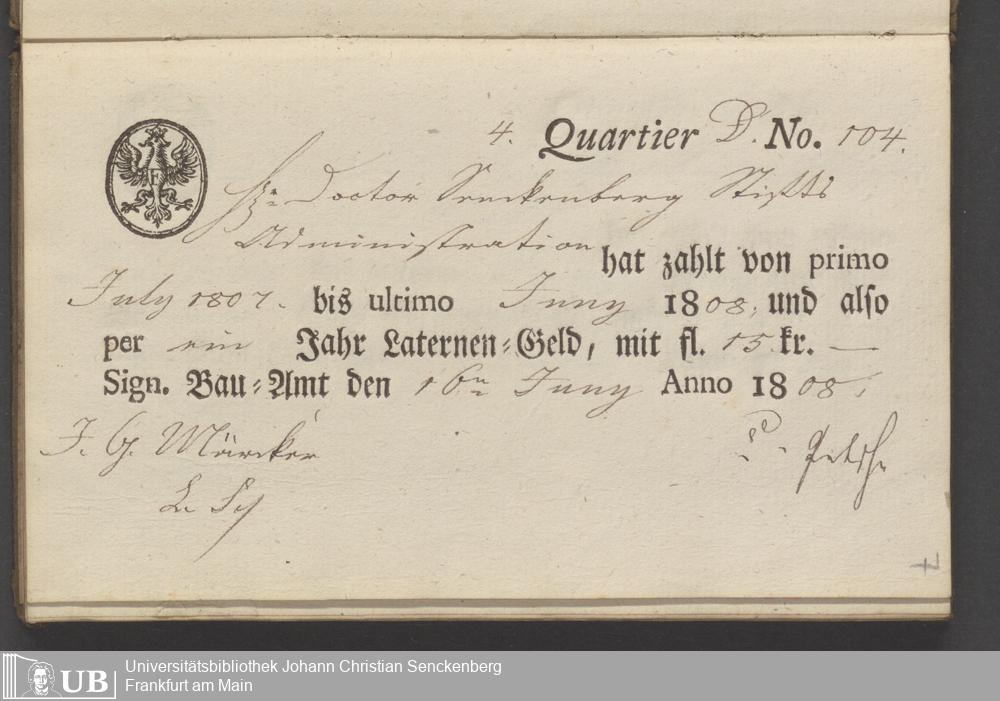 4. Quartier D. No. 104.
Hr. Doctor Senckenberg Stiffts
Administration
hat zahlt von primo
July 1807. bis ultimo Juny 1808, und also
per ein Jahr Laternen-Geld, mit fl. 15 kr. —
Sign. Bau-Amt den 16n Juny Anno 1808,
J. G. Märcker
F
UB
Universitätsbibliothek Johann Christian Senckenberg
Frankfurt am Main